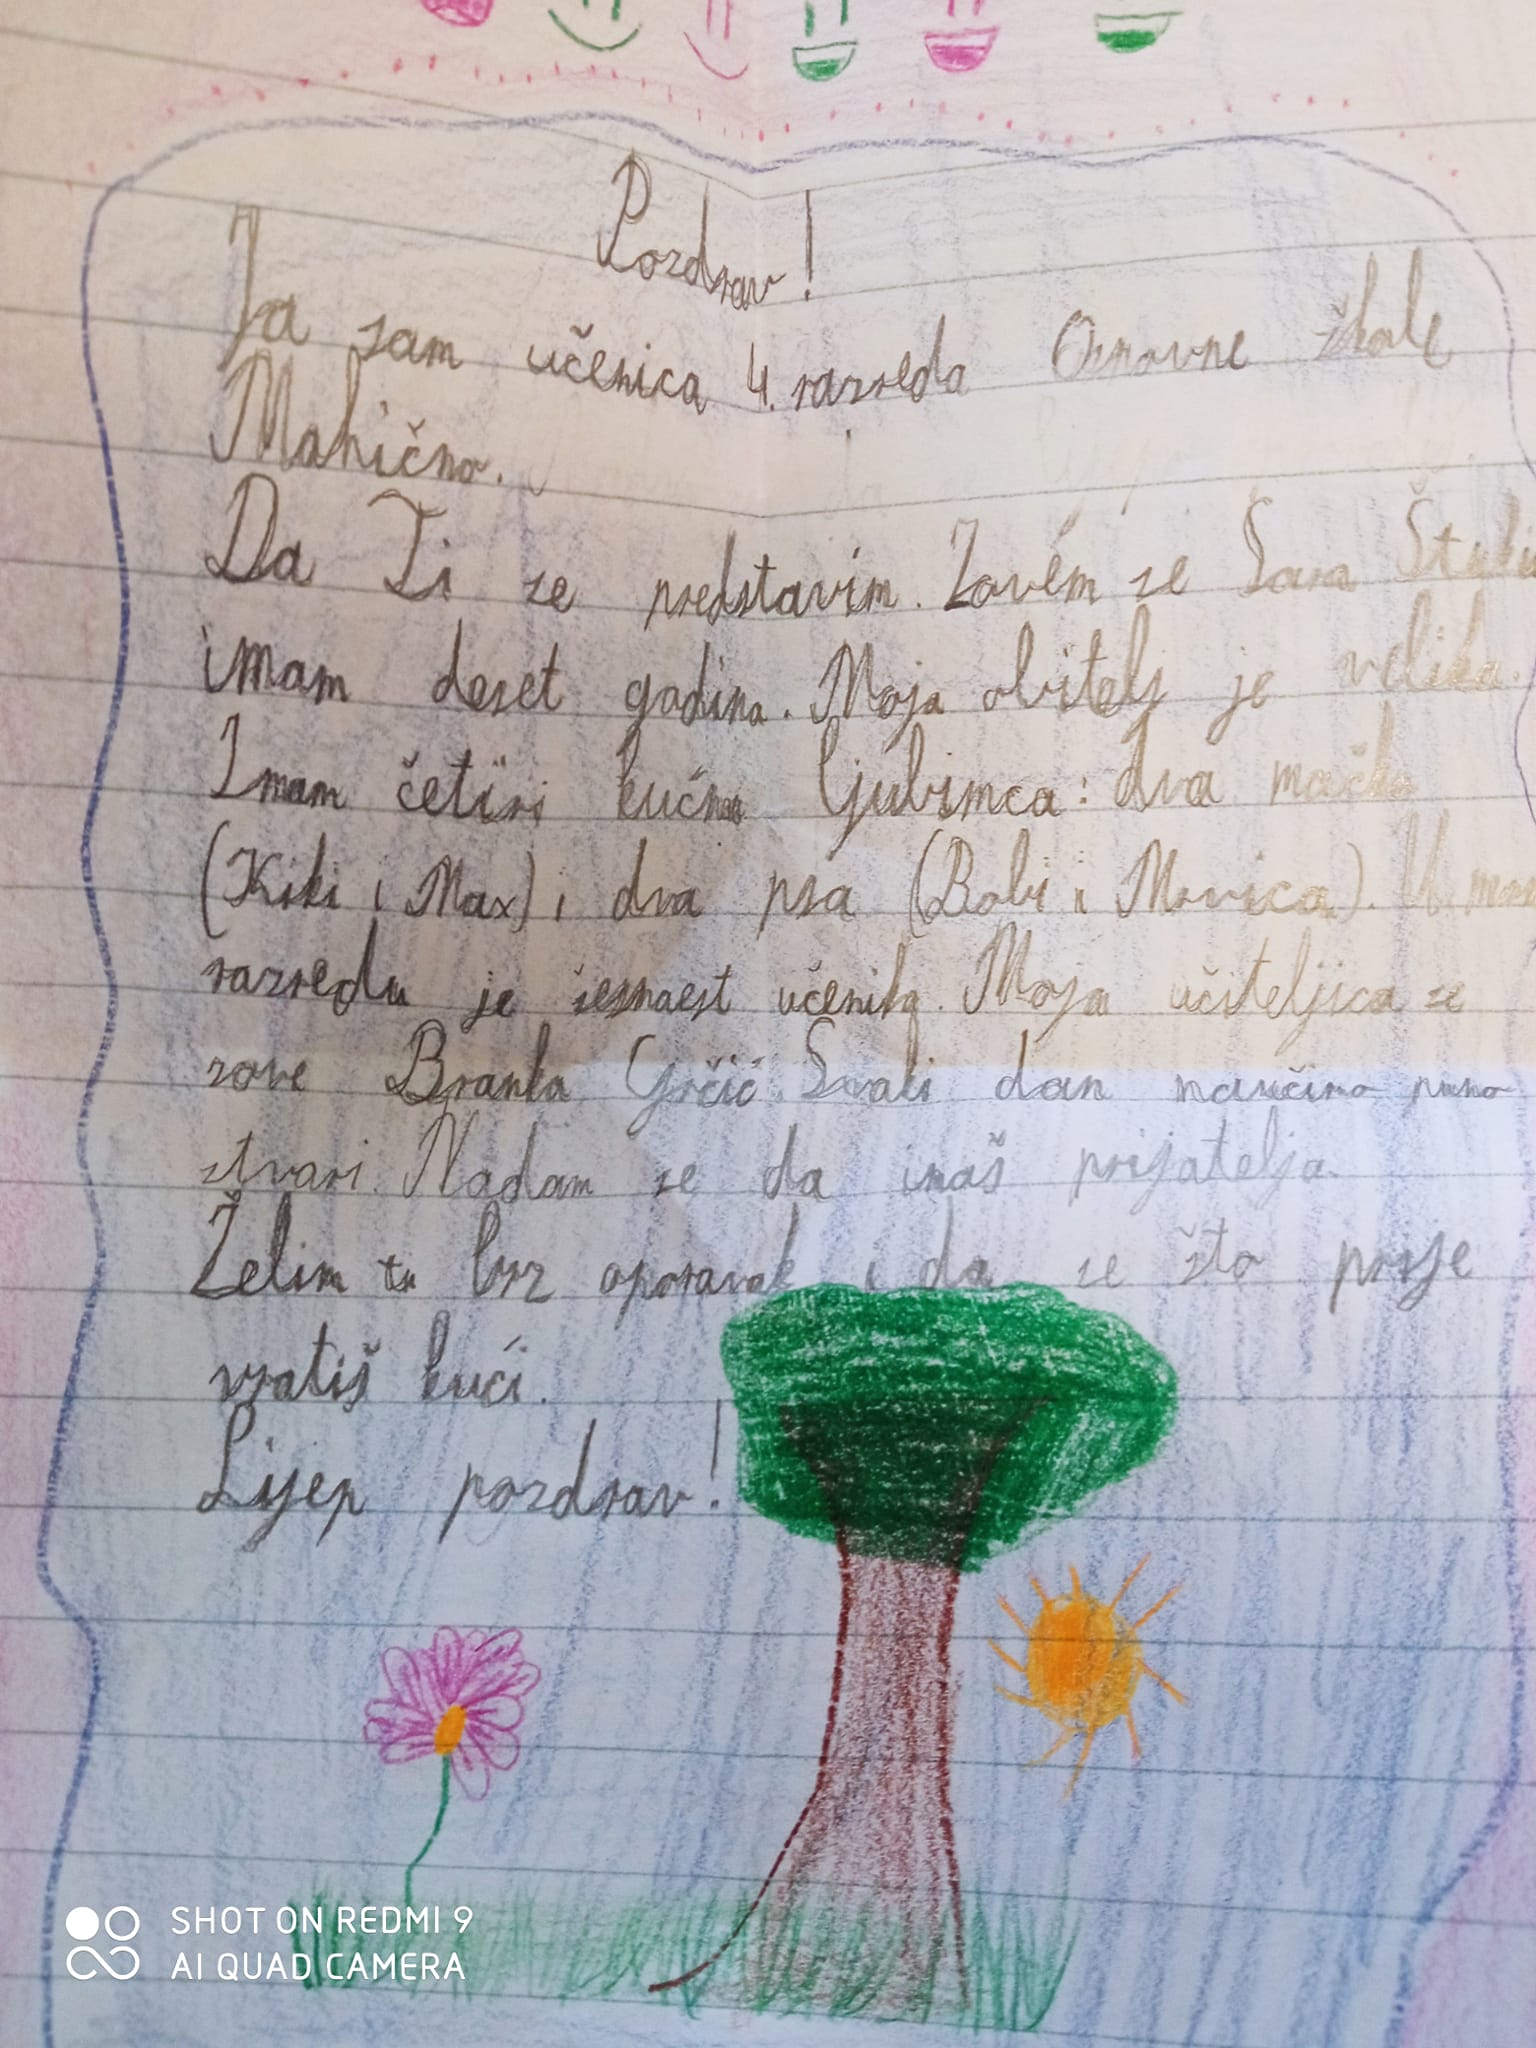 Pozdrav!
Ja sam učenica 4. razreda Osnovne škole
Mahično.
Da Ti se predstavim. Zovem se Sara
imam deset godina. Moja obitelj je velika.
Imam četiri kućna ljubimca: dva mačka
(Kiki i Max) i dva psa (Bobi i Mrvica). U mom
razredu je šesnaest učenika. Moja učiteljica se
zove Branka Grčić. Svaki dan naučimo puno
stvari. Nadam se da imaš prijatelja.
Želim ti brz oporavak i da se što prije
vratiš kući.
Lijep pozdrav!
SHOT ON REDMI 9
AI QUAD CAMERA